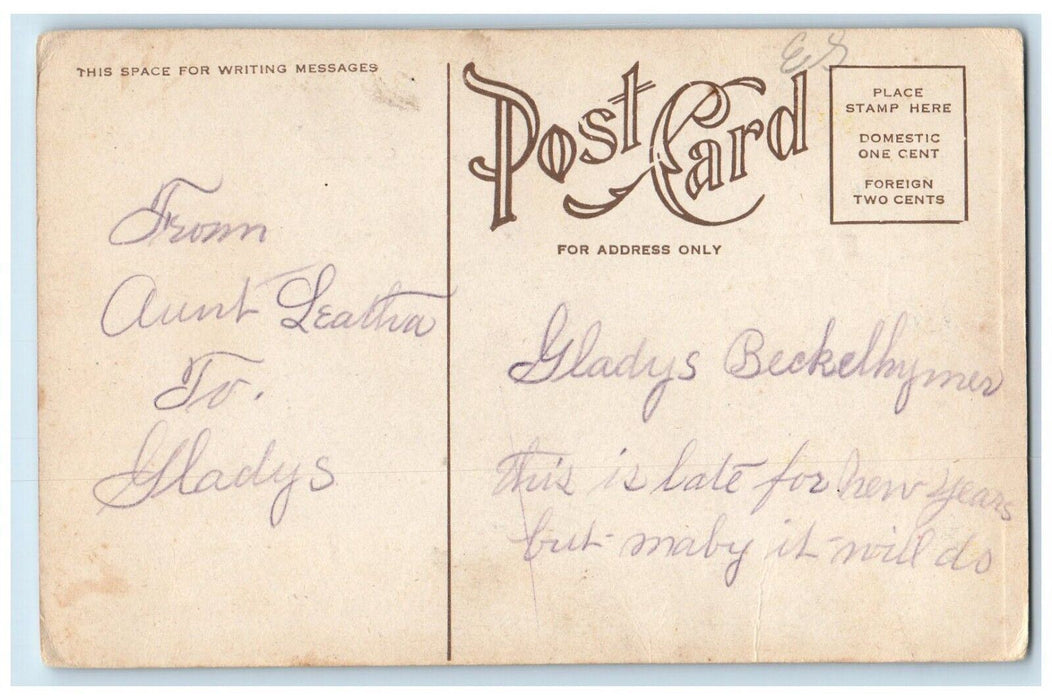 THIS SPACE FOR WRITING MESSAGES
From
Aunt Leatha
To.
Gladys
Post Card
FOR ADDRESS ONLY
PLACE
STAMP HERE
DOMESTIC
ONE CENT
FOREIGN
TWO CENTS
Gladys Beckelhymer
this is late for new years
but maby it will do